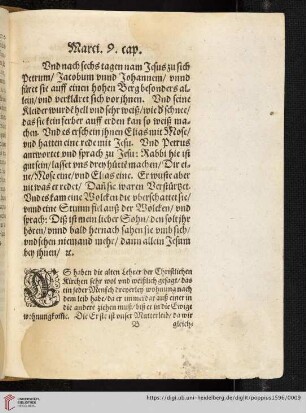 Marci. 9. cap.
Vnd nach sechs tagen nam Jesus zu sich
Petrum/ Jacobum vnnd Johannem/ vnnd
füret sie auff einen hohen Berg besonders al-
lein/ vnd verkläret sich vor ihnen. Vnd seine
Kleider wurdẽ hell vnd sehr weiß/ wie ď schnee/
das sie kein ferber auff erden kan so weiß ma-
chen. Vnd es erschein jhnen Elias mit Mose/
vnd hatten eine rede mit Jesu. Vnd Petrus
antwortet vnd sprach zu Jesu: Rabbi hie ist
gut sein/ lasset vns drey hüttẽ machen/ Dir ei-
ne/ Mose eine/ vnd Elias eine. Er wuste aber
nit was er redet/ Dañ sie waren Verstürtzet.
Vnd es kam eine Wolcken die vberschattet sie/
vnnd eine Stimm fiel auß der Wolcken/ vnd
sprach: Diß ist mein lieber Sohn/ den solt jhr
hören/ vnnd bald hernach sahen sie vmb sich/
vnd sehen niemand mehr/ dann allein Jesum
bey jhnen/ ꝛc.
ES haben die alten Lehrer der Christlichen
Kirchen sehr wol vnd weißlich gesagt/ das
ein jeder Mensch dreyerley wohnung nach
dem leib habe/ da er immerdar auß einer in
die andere ziehen muß/ biß er in die Ewige
wohnung komme. Die Erste ist vnser Mutterleib/ da wir
B gleich-
https://digi.ub.uni-heidelberg.de/diglit/poppius1596/0009